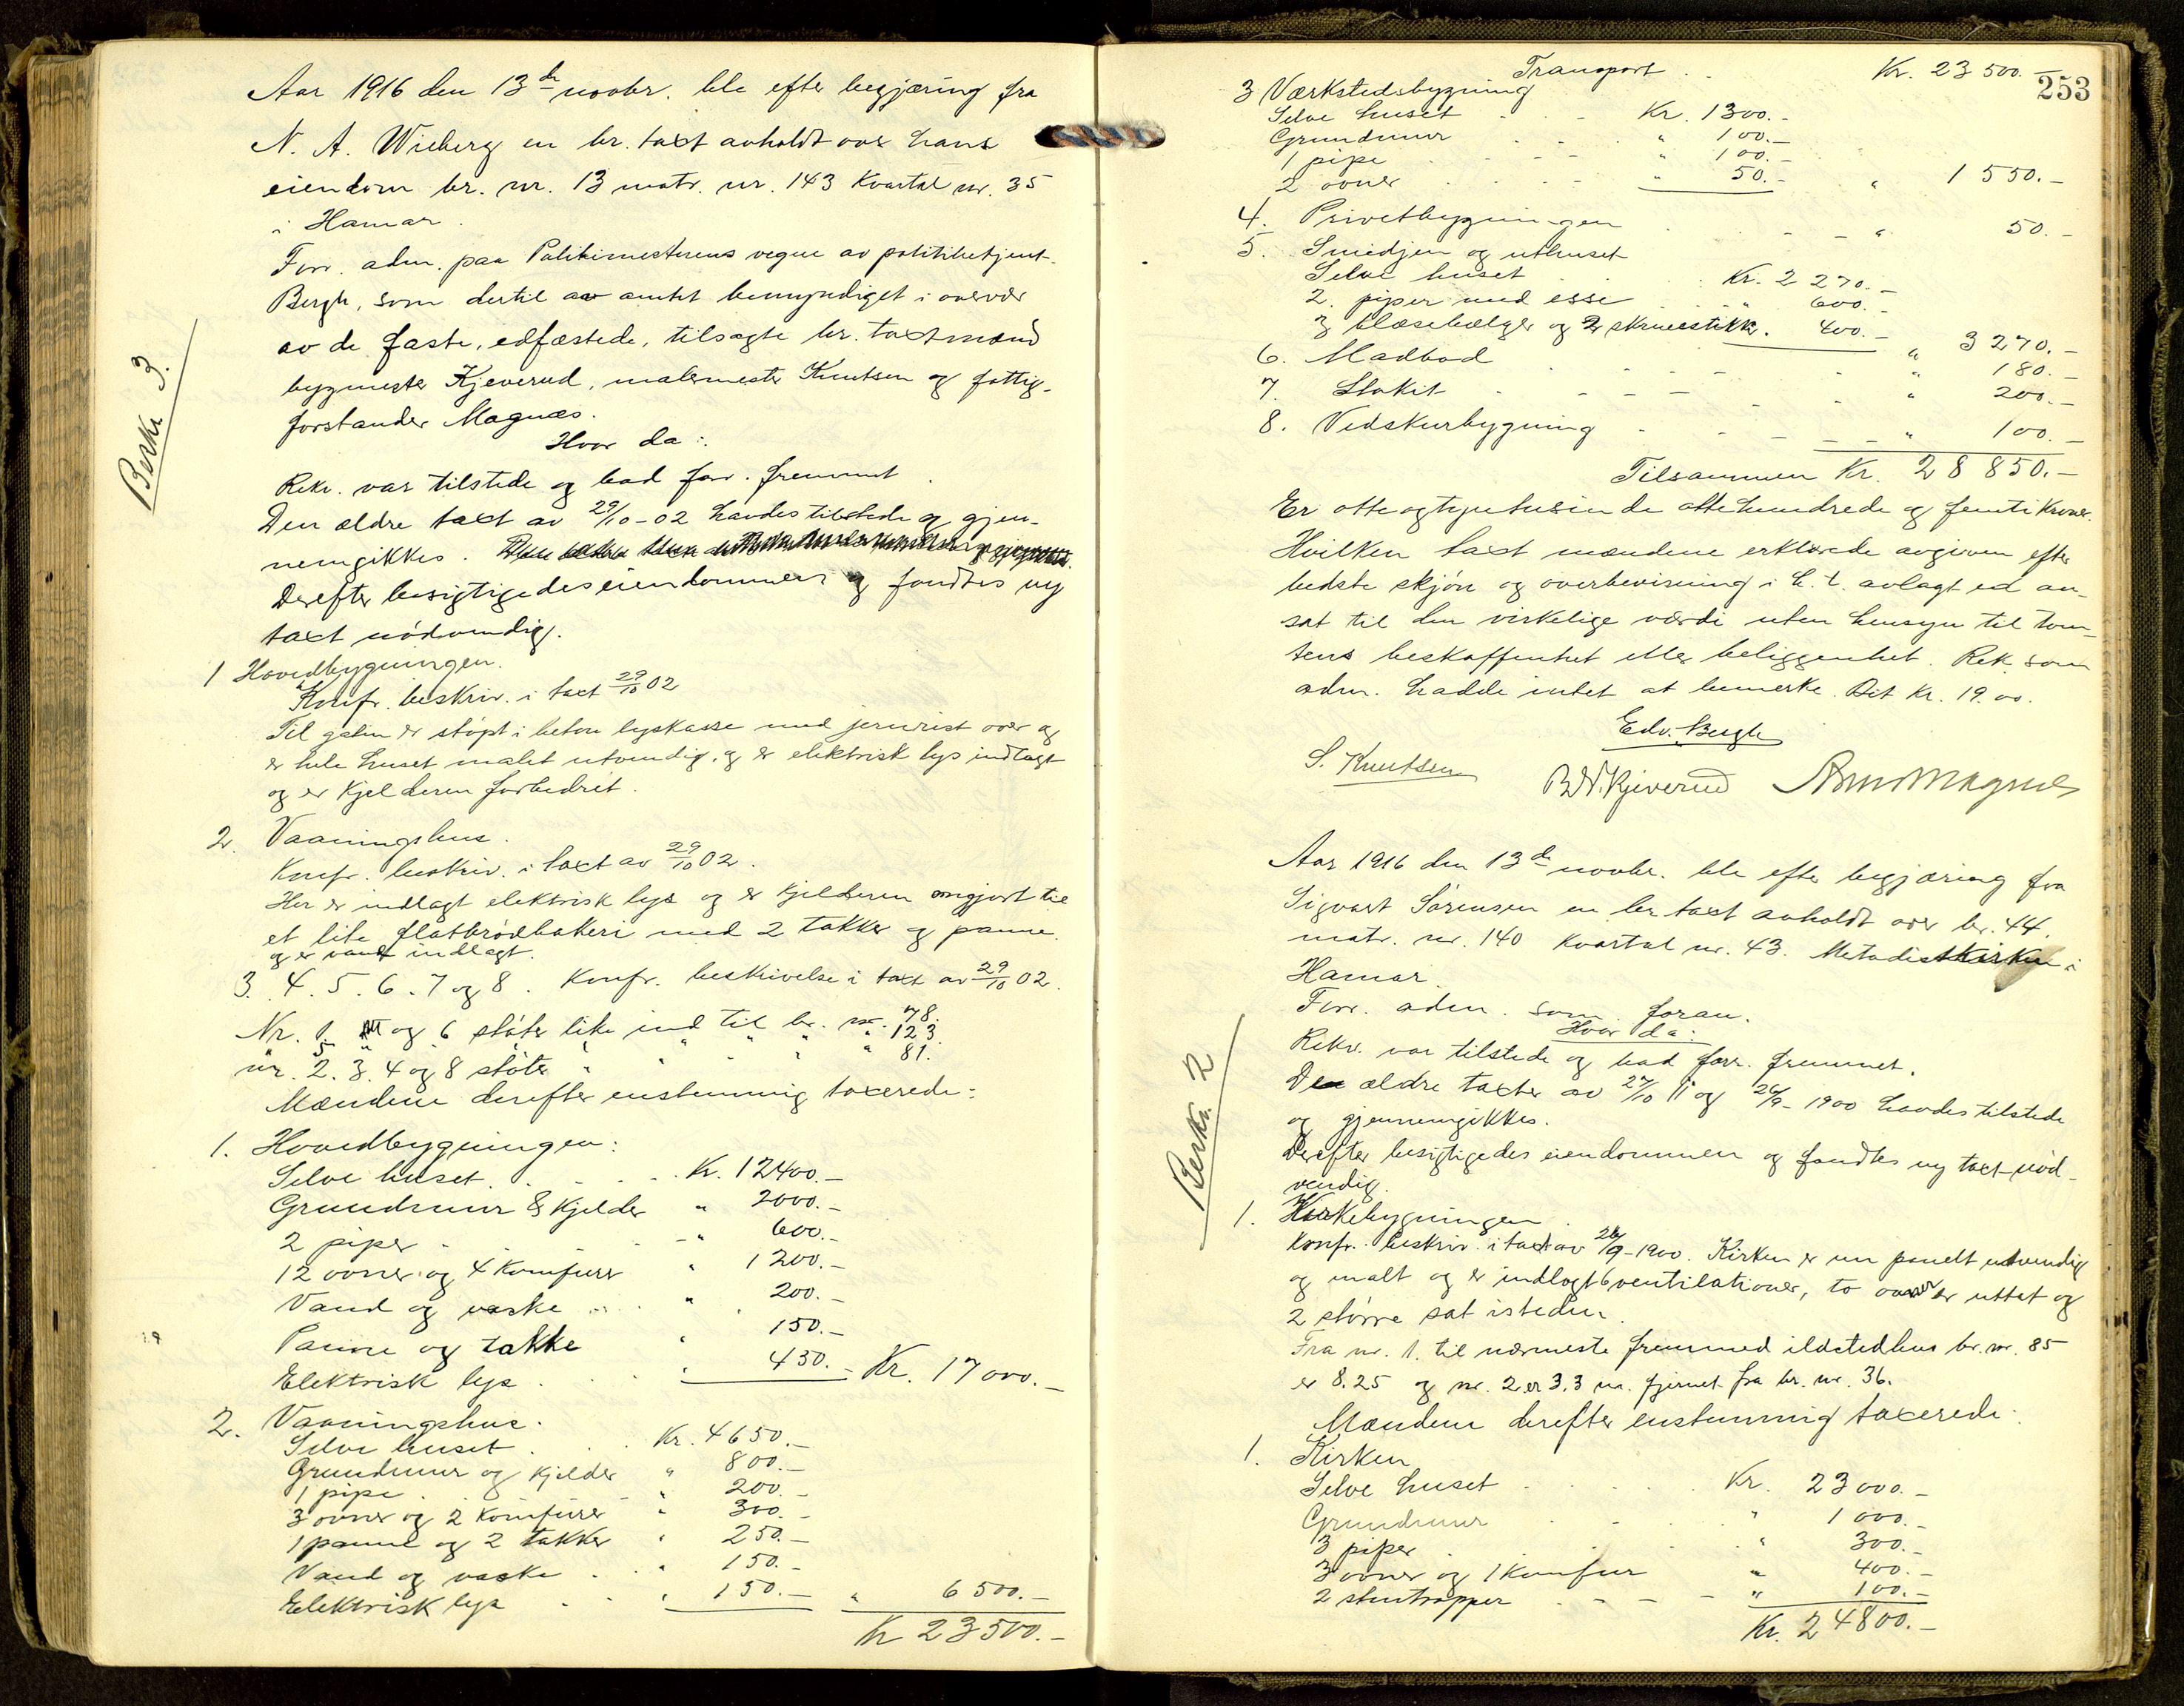 Aar 1916 den 13de novbr. ble efter begjæring fra
N. A. Wieberg en br. taxt avholdt over hans
eiendom br. nr. 13 matr. nr. 143 Kvartal nr. 35
i Hamar.
Forr. adm. paa Politimesterens vegne av politibetjent
Bergh, som dertil av amtet bemyndiget i overvær
av de faste, edfæstede, tilsagte br. taxtmænd
bygmester Kjeverud, malermester Knutsen og fattig-
forstander Magnæs.
Hvor da:
Rekv. var tilstede og bad forr. fremmet.
Den ældre taxt av 29/10-02 havdes tilstede og gjen-
nemgikkes.
Derefter besigtigedes eiendommen og fandtes ny
taxt nödvendig.
Beskr. 3.
1 Hovedbygningen.
Konfr. beskriv. i taxt 29/10 02
Til gaten er stöpt i beton lyskasse med jernrist over og
er hele huset malet utvendig, og er elektrisk lys indlagt
og er Kjelderen forbedret.
2. Vaaningshus.
Konfr. beskriv. i taxt av 29/10 02.
Her er indlagt elektrisk lys og er Kjelderen omgjort til
et lite flatbrödbakeri med 2 takker og panne.
og er vand indlagt.
3. 4. 5. 6. 7 og 8. Konfr. beskrivelse i taxt av 29/10 02.
Nr. 1 og 6 stöter like ind til br. nr. 78.
" 5 " " " " " " 123.
nr. 2. 3. 4 og 8 stöter " " " " " 81.
Mændene derefter enstemmig taxerede:
1. Hovedbygningen:
Selve huset . . . Kr. 12400.-
Grundmur & Kjelder " 2000.-
2 piper . - " 600.-
12 ovner og 4 Komfurer " 1200.-
Vand og vaske " 200.-
Panne og takke " 150.-
Elektrisk lys . . . " 450.- Kr. 17000.-
2. Vaaningshus.
Selve huset . . . Kr. 4650.-
Grundmur og Kjelder " 800.-
1 pipe . " 200.-
3 ovner og 2 Komfurer " 300.-
1 panne og 2 takker " 250.-
Vand og vaske . . " 150.-
Elektrisk lys . . " 150.- " 6500.-
Kr 23500.-
253
Transport . . Kr. 23500.-
3 Værkstedsbygning
Selve huset . . - Kr. 1300.-
Grundmur . . . " 100.-
1 pipe . . - - " 100.-
2 ovner . . - - " 50.- " 1550.-
4. Privetbygningen . . - - " 50.-
5. Smedjen og uthuset
Selve huset . . Kr. 2270.-
2. piper med esse . . " 600.-
3 blæsebælger og 2 skruestikk. 400.- " 3270.-
6. Madbod . . - - - " 180.-
7. Stakit - - - - " 200.-
8. Vedskurbygning - - - - " 100.-
Tilsammen Kr. 28850.-
Er otteogtyvetusinde ottehundrede og femti Kroner.
Hvilken taxt mændene erklærede avgiven efter
bedste skjön og overbevisning i h. t. avlagt ed an-
sat til den virkelige værdi uten hensyn til tom-
tens beskaffenhet eller beliggenhet. Rek. som
adm. hadde intet at bemerke. Bet Kr. 19.00.
Edv. Bergh
S. Knutsen B. N. Kjeverud Magnæs
Aar 1916 den 13de novbr. ble efter begjæring fra
Sigvart Sörensen en br. taxt avholdt over br. 44.
matr. nr. 140 Kvartal nr. 43. Metodistkirken i
Hamar.
Forr. adm. som foran.
Hvor da:
Rekv. var tilstede og bad forr. fremmet.
De ældre taxter av 27/10 11 og 26/9-1900 havdes tilstede
og gjennemgikkes.
Derefter besigtigedes eiendommen og fandtes ny taxt nöd-
vendig.
Beskr. 2
1. Kirkebygningen.
Konfr. beskriv. i taxt av 26/9-1900. Kirken er nu panelt utvendig
og malt og er indlagt 6 ventilationer, to ovner er uttat og
2 större sat isteden.
Fra nr. 1. til nærmeste fremmed ildstedhus br. nr. 85
er 8.25 og nr. 2 er 3.3 m. fjernet fra br. nr. 36.
Mændene derefter enstemmig taxerede.
1. Kirken
Selve huset . . . . Kr. 23000.-
Grundmur . - . . " 1000.-
3 piper . . . . " 300.-
3 ovner og 1 Komfur " 400.-
2 stentrapper . - - - " 100.-
Kr. 24800.-